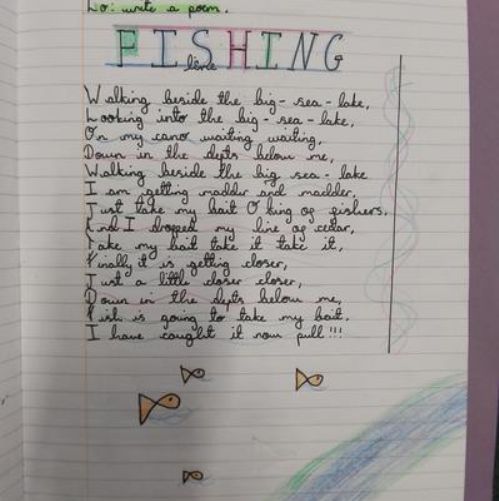 Lo: write a poem.
FISHING
line
Walking beside the big-sea-lake,
Looking into the big-sea-lake,
On my cano waiting waiting,
Down in the depts below me,
Walking beside the big sea-lake
I am getting madder and madder,
Just take my bait O king of fishers.
And I dropped my line of cedar,
Take my bait take it take it,
Finally it is getting closer,
Just a little closer closer,
Down in the depts below me,
Fish is going to take my bait.
I have caught it now pull!!!